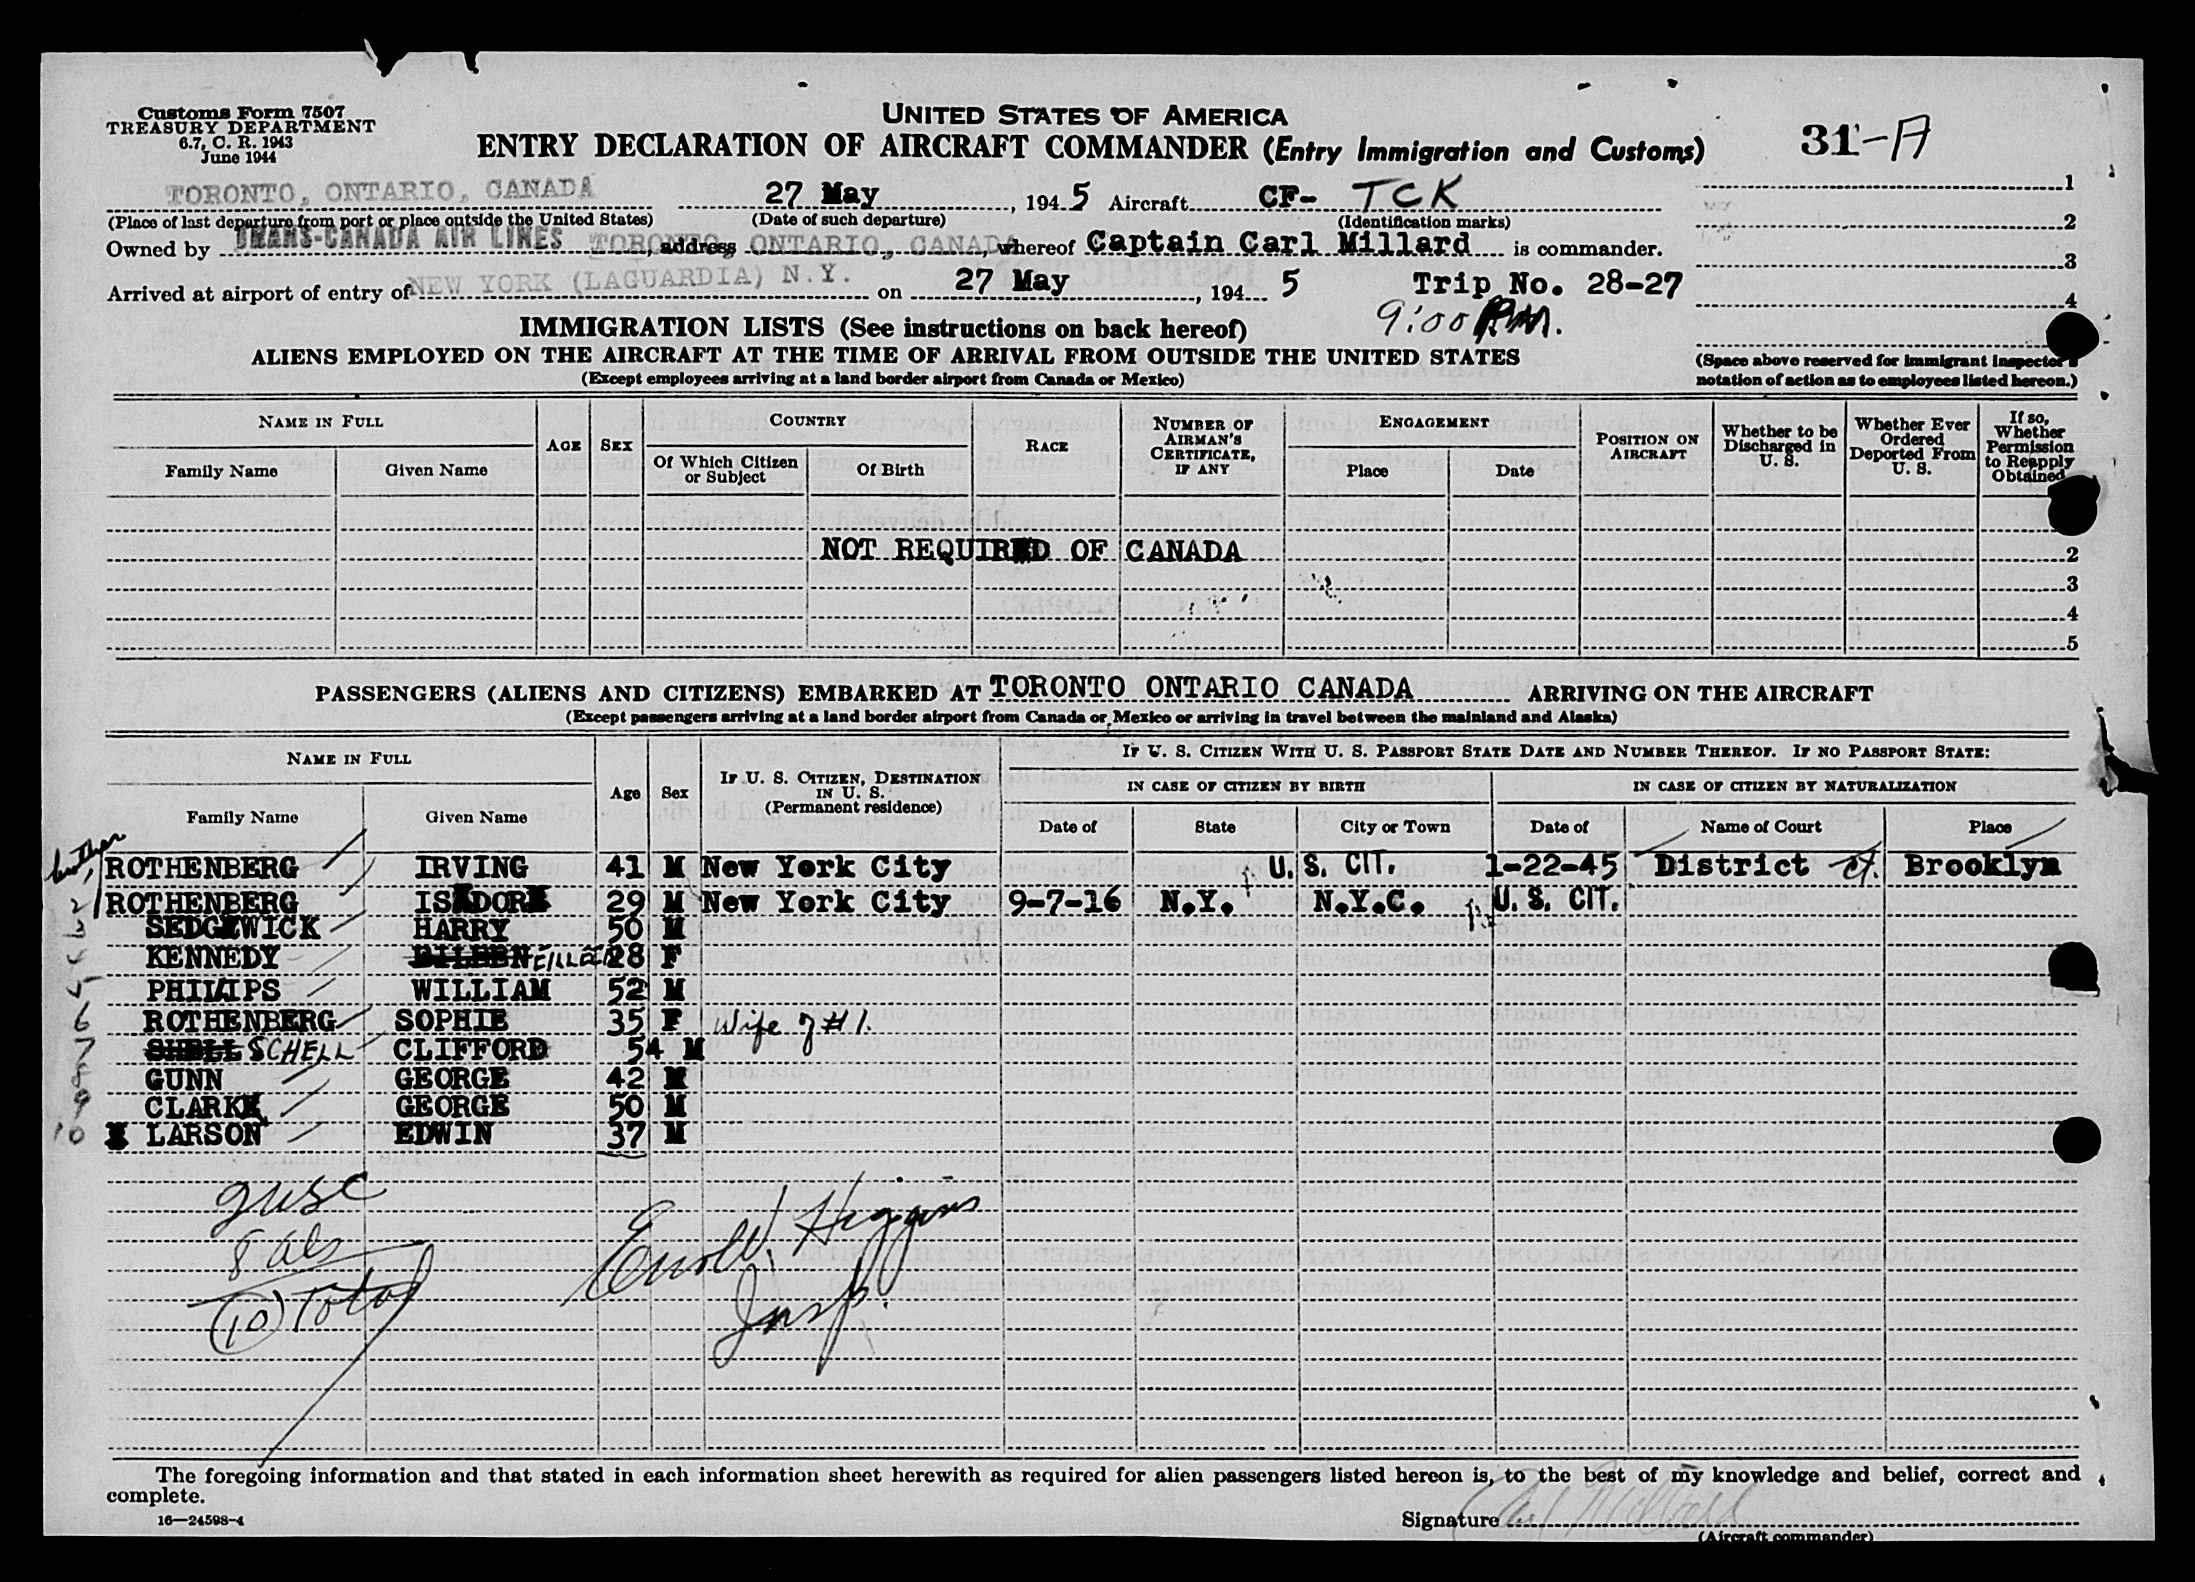 Customs Form 7507
TREASURY DEPARTMENT
6.7, C. R. 1943
June 1944
UNITED STATES OF AMERICA
ENTRY DECLARATION OF AIRCRAFT COMMANDER (Entry Immigration and Customs)
31-A
TORONTO, ONTARIO, CANADA 27 May, 1945 Aircraft CF- TCK
(Place of last departure from port or place outside the United States) (Date of such departure) (Identification marks)
Owned by TRANS-CANADA AIR LINES, address TORONTO, ONTARIO, CANADA, whereof Captain Carl Millard is commander.
Arrived at airport of entry of NEW YORK (LAGUARDIA) N.Y. on 27 May, 1945 Trip No. 28-27
9:00 P.M.
1
2
3
4
(Space above reserved for Immigrant Inspector's
notation of action as to employees listed hereon.)
IMMIGRATION LISTS (See instructions on back hereof)
ALIENS EMPLOYED ON THE AIRCRAFT AT THE TIME OF ARRIVAL FROM OUTSIDE THE UNITED STATES
(Except employees arriving at a land border airport from Canada or Mexico)
NAME IN FULL AGE SEX COUNTRY RACE NUMBER OF AIRMAN'S CERTIFICATE, IF ANY ENGAGEMENT POSITION ON AIRCRAFT Whether to be Discharged in U. S. Whether Ever Ordered Deported From U. S. If so, Whether Permission to Reapply Obtained
Family Name Given Name Of Which Citizen or Subject Of Birth Place Date
NOT REQUIRED OF CANADA 2
3
4
5
PASSENGERS (ALIENS AND CITIZENS) EMBARKED AT TORONTO ONTARIO CANADA ARRIVING ON THE AIRCRAFT
(Except passengers arriving at a land border airport from Canada or Mexico or arriving in travel between the mainland and Alaska)
NAME IN FULL Age Sex IF U. S. CITIZEN, DESTINATION IN U. S. (Permanent residence) IF U. S. CITIZEN WITH U. S. PASSPORT STATE DATE AND NUMBER THEREOF. IF NO PASSPORT STATE:
IN CASE OF CITIZEN BY BIRTH IN CASE OF CITIZEN BY NATURALIZATION
Family Name Given Name Date of State City or Town Date of Name of Court Place
brother
1 ROTHENBERG IRVING 41 M New York City U. S. CIT. 1-22-45 District Ct. Brooklyn
2 ROTHENBERG ISADORE 29 M New York City 9-7-16 N.Y. N.Y.C. U. S. CIT.
3 SEDGEWICK HARRY 50 M
4 KENNEDY EILEEN 28 F
5 PHILLIPS WILLIAM 52 M
6 ROTHENBERG SOPHIE 35 F Wife of #1.
7 SCHELL CLIFFORD 54 M
8 GUNN GEORGE 42 M
9 CLARK GEORGE 50 M
10 LARSON EDWIN 37 M
2 USC
8 als
(10) Total
Higgins
Insp.
The foregoing information and that stated in each information sheet herewith as required for alien passengers listed hereon is, to the best of my knowledge and belief, correct and
complete.
16—24598-4
Signature Carl Millard
(Aircraft commander)